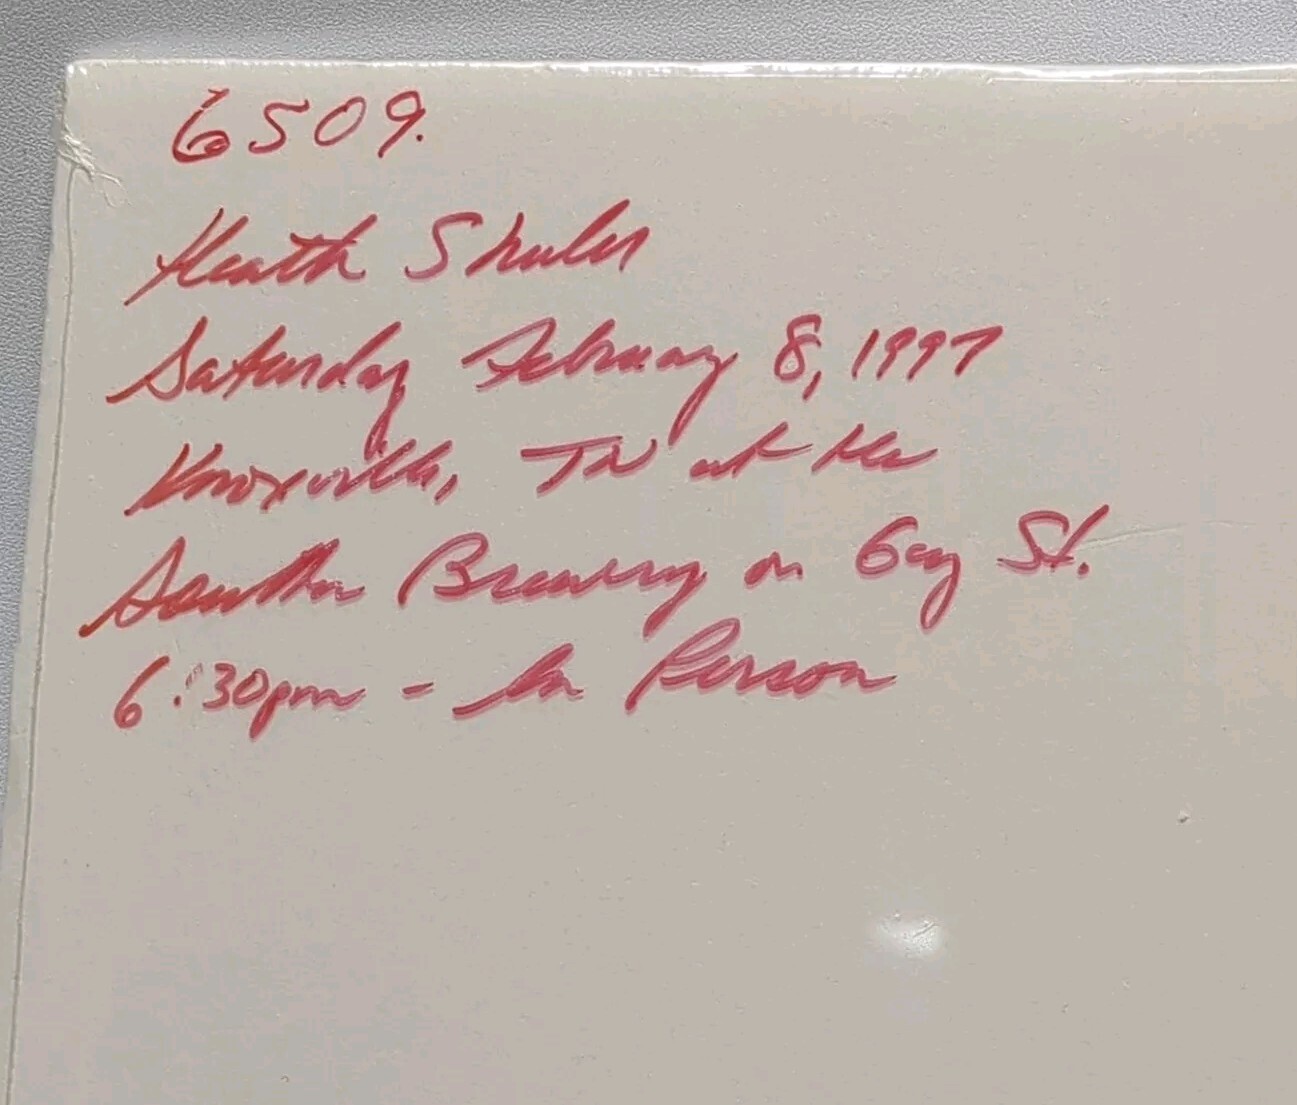 6509.
Heath Shuler
Saturday February 8, 1997
Knoxville, TN at the
Southern Brewery on Gay St.
6:30pm - In Person